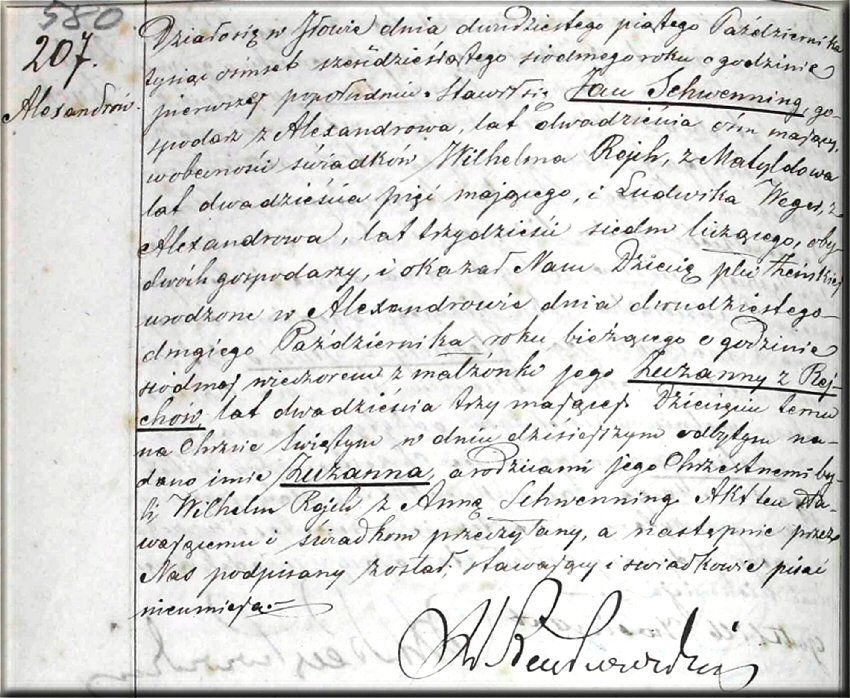 580
207.
Alexandrów.
Działo się w Iłowie dnia dwudziestego piątego Października
tysiąc ośmset sześdziesiątego siodmego roku o godzinie
pierwszej popołudniu. Stawił się Jan Schwenning go-
spodarz z Alexandrowa, lat dwadzieścia ośm mający,
w obecności świadków Wilhelma Rejch, z Matyldowa
lat dwadzieścia pięć mającego, i Ludwika Weger, z
Alexandrowa, lat trzydzieści siedm liczącego, oby-
dwóch gospodarzy, i okazał Nam Dziecię płci Żeńskiej
urodzone w Alexandrowie dnia dwudziestego
drugiego Października roku bieżącego o godzinie
siódmej wieczorem z małżonki jego Zuzanny z Rej-
chów, lat dwadzieścia trzy mającej. Dziecięciu temu
na Chrzcie Świętym w dniu dzisiejszym odbytym na-
dano imie Zuzanna, a rodzicami jego Chrzestnemi by-
li, Wilhelm Rejch z Anną Schwenning. Akt ten sta-
wającemu i świadkom przeczytany, a następnie przez
Nas podpisany został, stawający i świadkowie pisać
nieumieją.